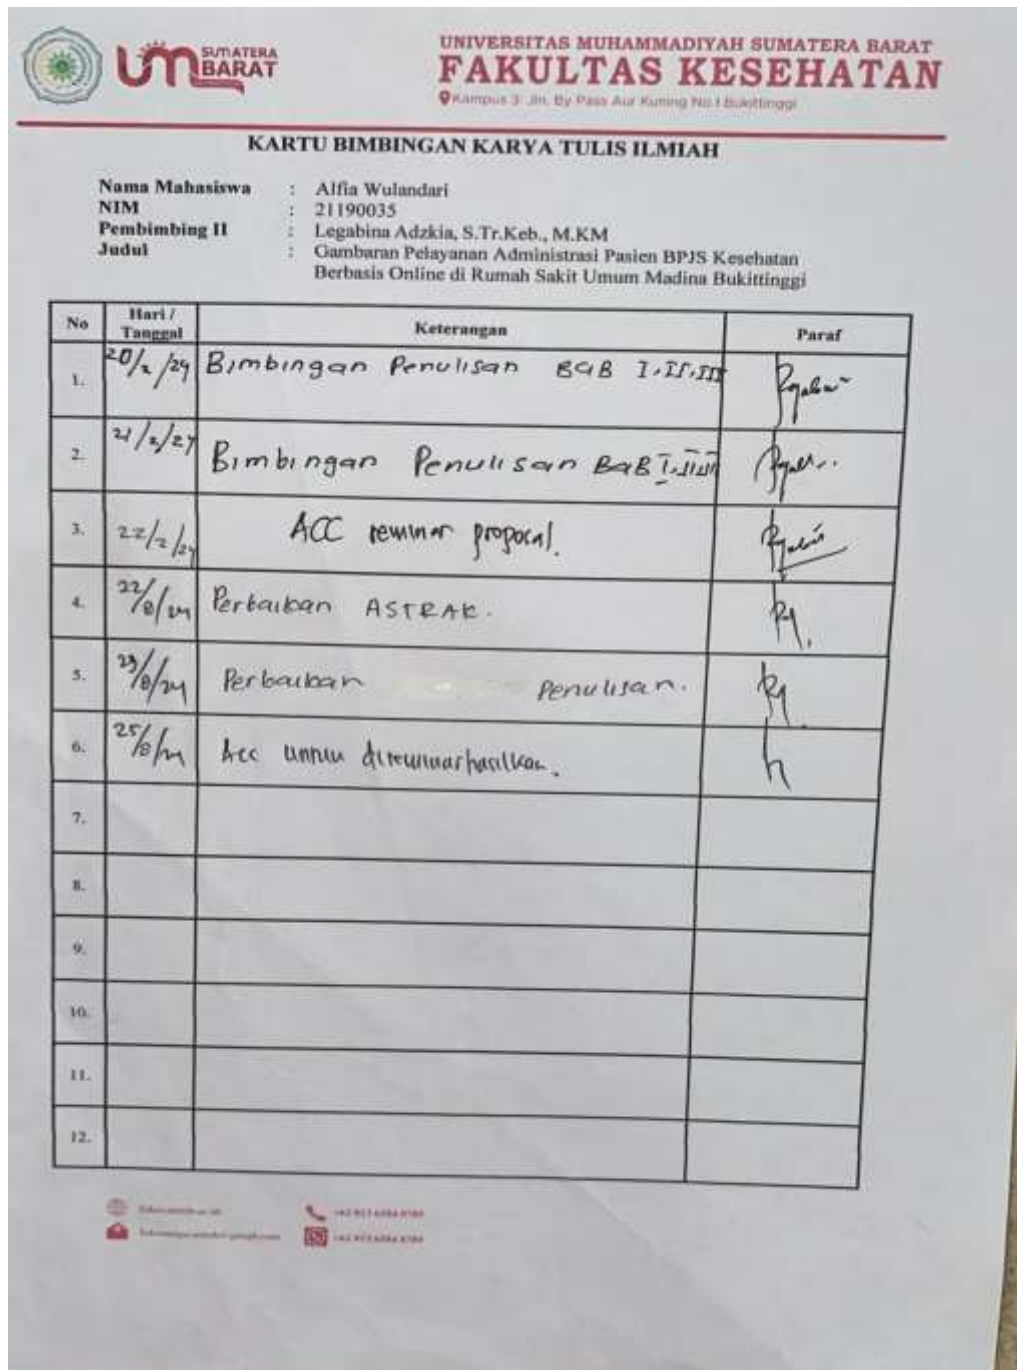 UM SUMATERA BARAT
UNIVERSITAS MUHAMMADIYAH SUMATERA BARAT
FAKULTAS KESEHATAN
Kampus 3: Jln. By Pass Aur Kuning No.1 Bukittinggi
KARTU BIMBINGAN KARYA TULIS ILMIAH
Nama Mahasiswa : Alfia Wulandari
NIM : 21190035
Pembimbing II : Legabina Adzkia, S.Tr.Keb., M.KM
Judul : Gambaran Pelayanan Administrasi Pasien BPJS Kesehatan
Berbasis Online di Rumah Sakit Umum Madina Bukittinggi
No Hari / Tanggal Keterangan Paraf
1. 20/2/24 Bimbingan Penulisan BAB I,II,III
2. 21/2/24 Bimbingan Penulisan BAB I,II,III
3. 22/2/24 ACC seminar proposal.
4. 22/8/24 Perbaikan ASTRAK.
5. 23/8/24 Perbaikan Penulisan.
6. 25/8/24 Acc untuk diseminarhasilkan.
7.
8.
9.
10.
11.
12.